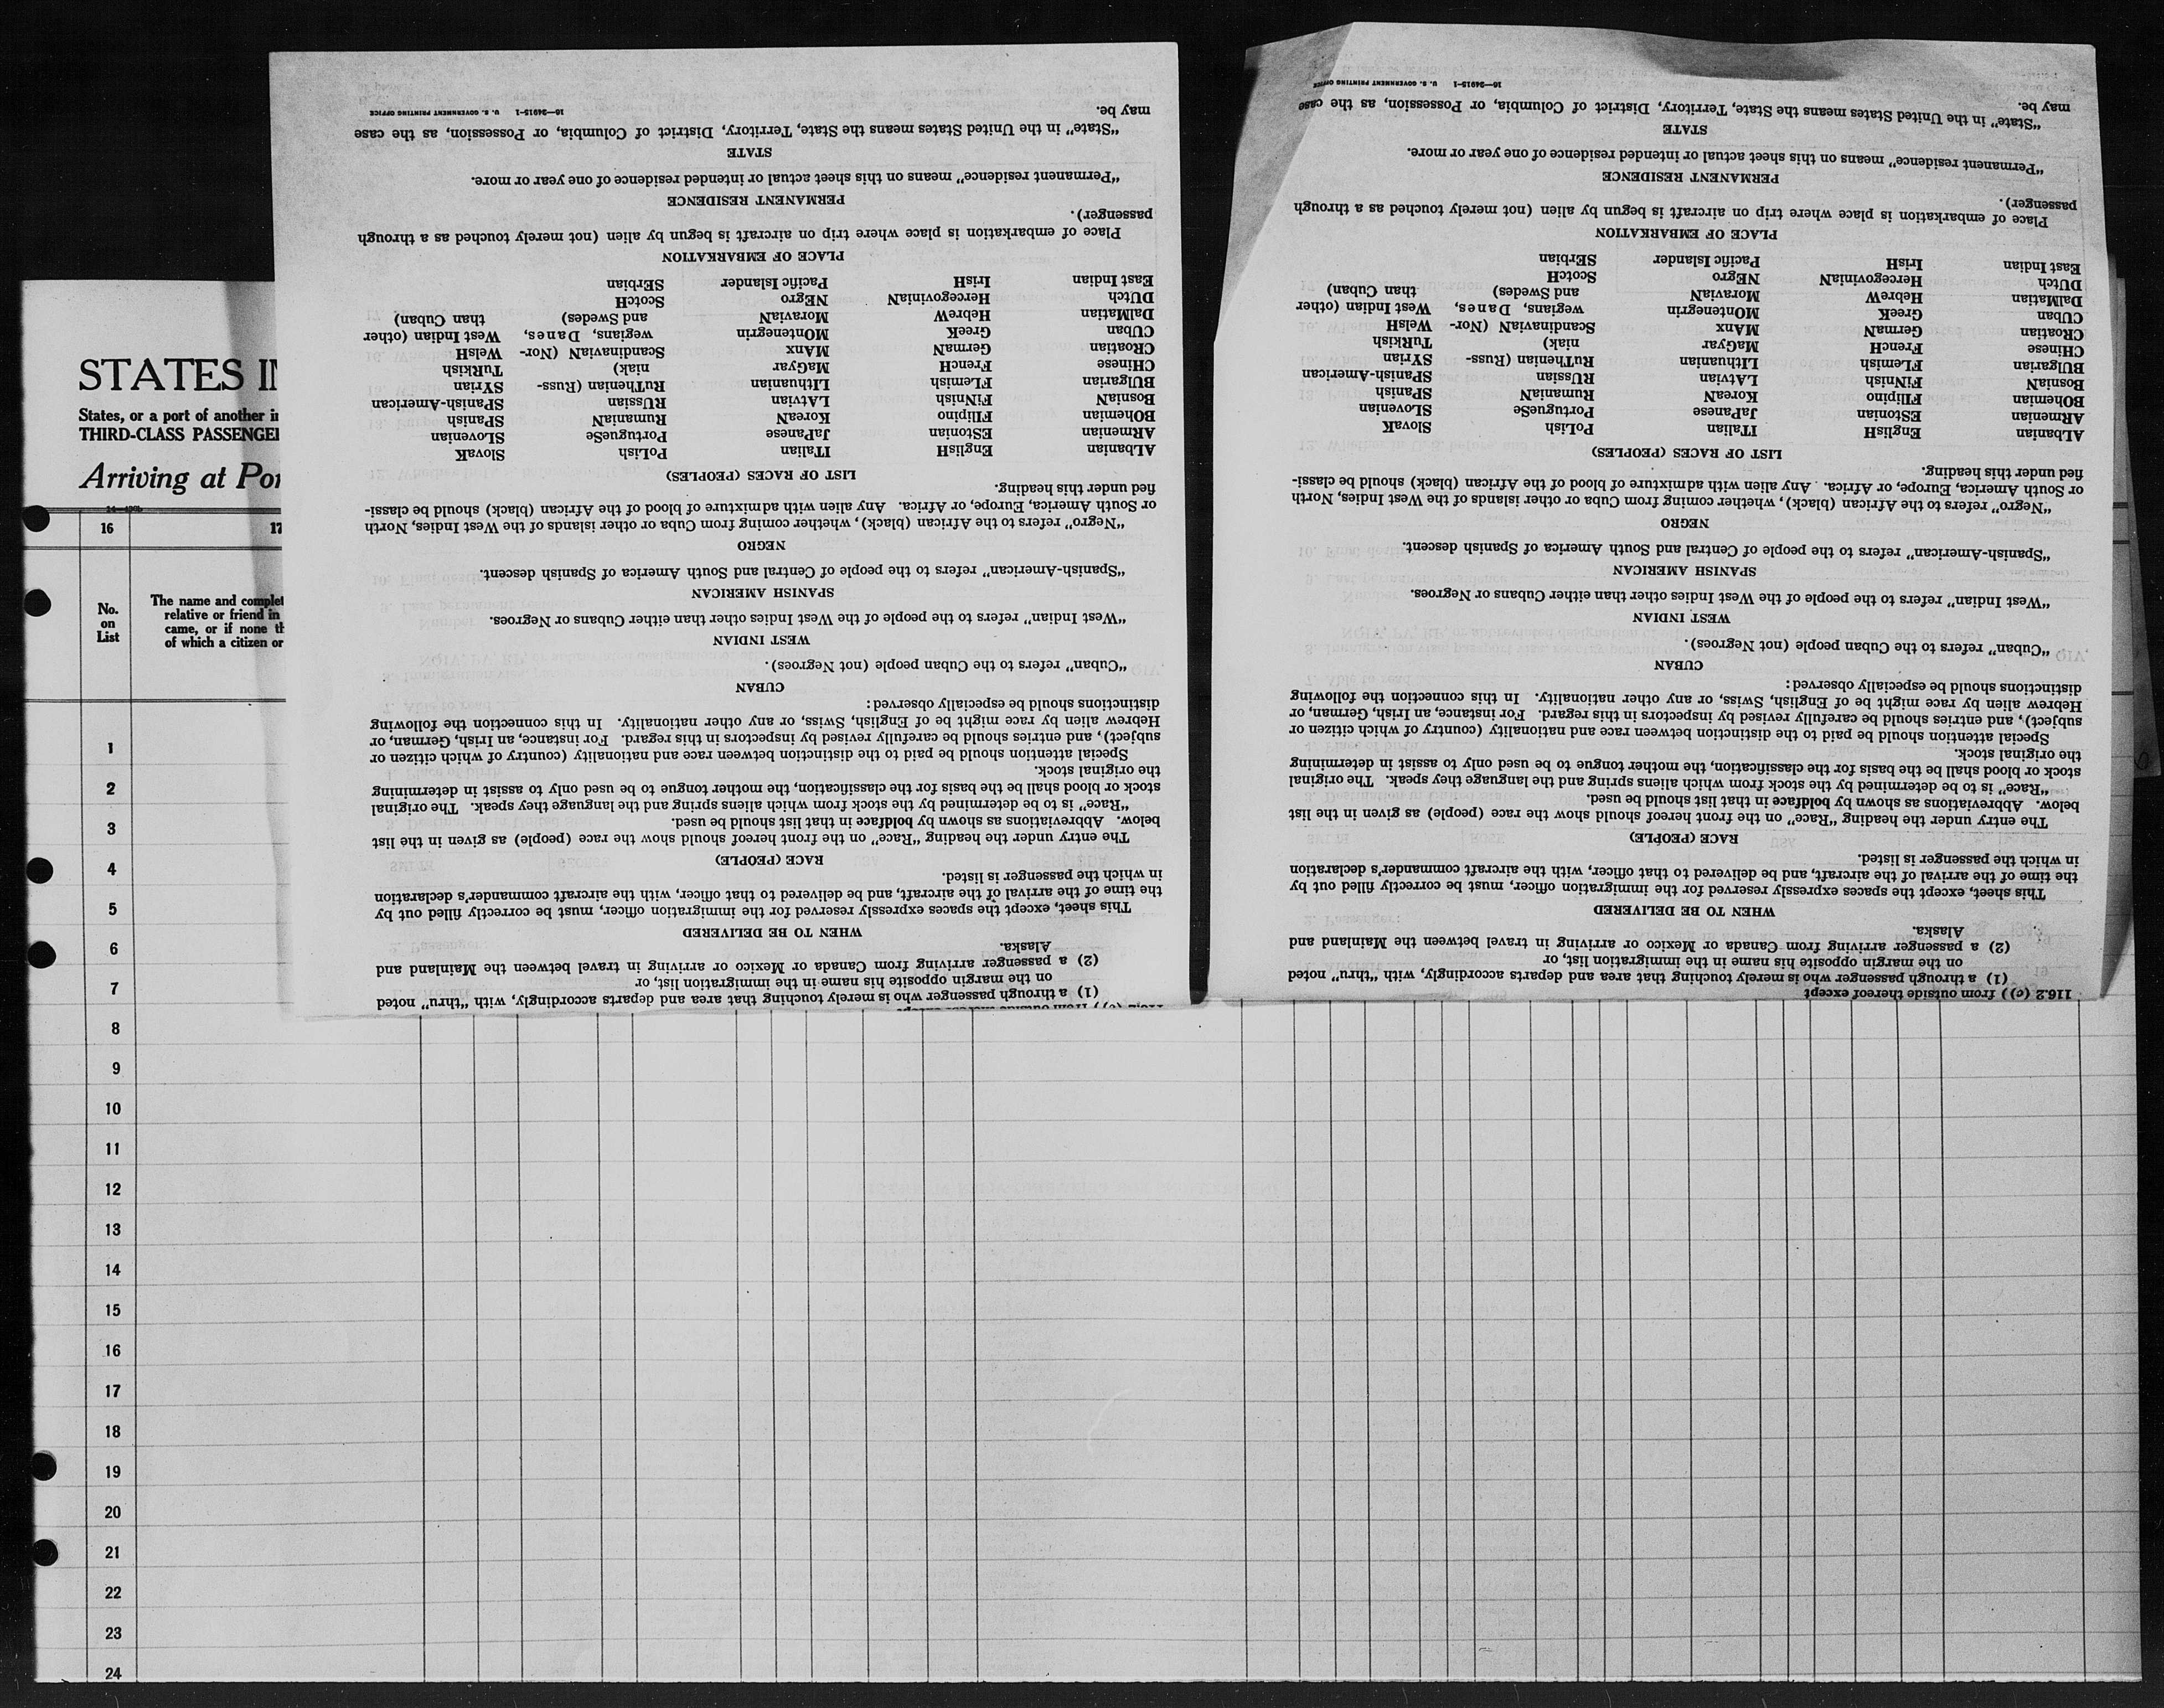 STATES IN
States, or a port of another in
THIRD-CLASS PASSENGER
Arriving at Por
16 17
No.
on
List
The name and complet
relative or friend in
came, or if none th
of which a citizen or
1
2
3
4
5
6
7
8
9
10
11
12
13
14
15
16
17
18
19
20
21
22
23
24
(1) a through passenger who is merely touching that area and departs accordingly, with “thru” noted
on the margin opposite his name in the immigration list, or
(2) a passenger arriving from Canada or Mexico or arriving in travel between the Mainland and
Alaska.
WHEN TO BE DELIVERED
This sheet, except the spaces expressly reserved for the immigration officer, must be correctly filled out by
the time of the arrival of the aircraft, and be delivered to that officer, with the aircraft commander’s declaration
in which the passenger is listed.
RACE (PEOPLE)
The entry under the heading “Race” on the front hereof should show the race (people) as given in the list
below. Abbreviations as shown by boldface in that list should be used.
“Race” is to be determined by the stock from which aliens spring and the language they speak. The original
stock or blood shall be the basis for the classification, the mother tongue to be used only to assist in determining
the original stock.
Special attention should be paid to the distinction between race and nationality (country of which citizen or
subject), and entries should be carefully revised by inspectors in this regard. For instance, an Irish, German, or
Hebrew alien by race might be of English, Swiss, or any other nationality. In this connection the following
distinctions should be especially observed:
CUBAN
“Cuban” refers to the Cuban people (not Negroes).
WEST INDIAN
“West Indian” refers to the people of the West Indies other than either Cubans or Negroes.
SPANISH AMERICAN
“Spanish-American” refers to the people of Central and South America of Spanish descent.
NEGRO
“Negro” refers to the African (black), whether coming from Cuba or other islands of the West Indies, North
or South America, Europe, or Africa. Any alien with admixture of blood of the African (black) should be classi-
fied under this heading.
LIST OF RACES (PEOPLES)
ALbanian EngliSH ITalian PoLish SlovaK
ARmenian EStonian JaPanese PortugueSe SLovenian
BOhemian FIlipino KoreaN RumaniaN SPanish
BosniaN FiNnish LAtvian RUssian SPanish-American
BUlgarian FLemish LIthuanian RuThenian (Russ- SYrian
CHinese FrencH MaGyar niak) TuRkish
CRoatian GermaN MAnx ScandinaviaN (Nor- WelsH
CUban GreeK MOntenegrin wegians, Danes, West Indian (other
DalMatian HebreW MoraviaN and Swedes) than Cuban)
DUtch HercegoviniaN NEgro ScotcH
East Indian IrisH Pacific Islander SErbian
PLACE OF EMBARKATION
Place of embarkation is place where trip on aircraft is begun by alien (not merely touched as a through
passenger).
PERMANENT RESIDENCE
“Permanent residence” means on this sheet actual or intended residence of one year or more.
STATE
“State” in the United States means the State, Territory, District of Columbia, or Possession, as the case
may be.
16—24915-1 U. S. GOVERNMENT PRINTING OFFICE
116.2 (c)) from outside thereof except
(1) a through passenger who is merely touching that area and departs accordingly, with “thru” noted
on the margin opposite his name in the immigration list, or
(2) a passenger arriving from Canada or Mexico or arriving in travel between the Mainland and
Alaska.
WHEN TO BE DELIVERED
This sheet, except the spaces expressly reserved for the immigration officer, must be correctly filled out by
the time of the arrival of the aircraft, and be delivered to that officer, with the aircraft commander’s declaration
in which the passenger is listed.
RACE (PEOPLE)
The entry under the heading “Race” on the front hereof should show the race (people) as given in the list
below. Abbreviations as shown by boldface in that list should be used.
“Race” is to be determined by the stock from which aliens spring and the language they speak. The original
stock or blood shall be the basis for the classification, the mother tongue to be used only to assist in determining
the original stock.
Special attention should be paid to the distinction between race and nationality (country of which citizen or
subject), and entries should be carefully revised by inspectors in this regard. For instance, an Irish, German, or
Hebrew alien by race might be of English, Swiss, or any other nationality. In this connection the following
distinctions should be especially observed:
CUBAN
“Cuban” refers to the Cuban people (not Negroes).
WEST INDIAN
“West Indian” refers to the people of the West Indies other than either Cubans or Negroes.
SPANISH AMERICAN
“Spanish-American” refers to the people of Central and South America of Spanish descent.
NEGRO
“Negro” refers to the African (black), whether coming from Cuba or other islands of the West Indies, North
or South America, Europe, or Africa. Any alien with admixture of blood of the African (black) should be classi-
fied under this heading.
LIST OF RACES (PEOPLES)
ALbanian EngliSH ITalian PoLish SlovaK
ARmenian EStonian JaPanese PortugueSe SLovenian
BOhemian FIlipino KoreaN RumaniaN SPanish
BosniaN FiNnish LAtvian RUssian SPanish-American
BUlgarian FLemish LIthuanian RuThenian (Russ- SYrian
CHinese FrencH MaGyar niak) TuRkish
CRoatian GermaN MAnx ScandinaviaN (Nor- WelsH
CUban GreeK MOntenegrin wegians, Danes, West Indian (other
DalMatian HebreW MoraviaN and Swedes) than Cuban)
DUtch HercegoviniaN NEgro ScotcH
East Indian IrisH Pacific Islander SErbian
PLACE OF EMBARKATION
Place of embarkation is place where trip on aircraft is begun by alien (not merely touched as a through
passenger).
PERMANENT RESIDENCE
“Permanent residence” means on this sheet actual or intended residence of one year or more.
STATE
“State” in the United States means the State, Territory, District of Columbia, or Possession, as the case
may be.
16—24915-1 U. S. GOVERNMENT PRINTING OFFICE